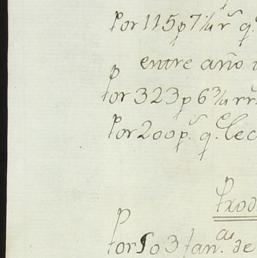 Por 115 p 7 ¼ r.^s q.^e
entre año
Por 323 p 6 ¾ rr.^s
Por 200 p.^s q.^e le
Prod
Por 503 fan.^as de